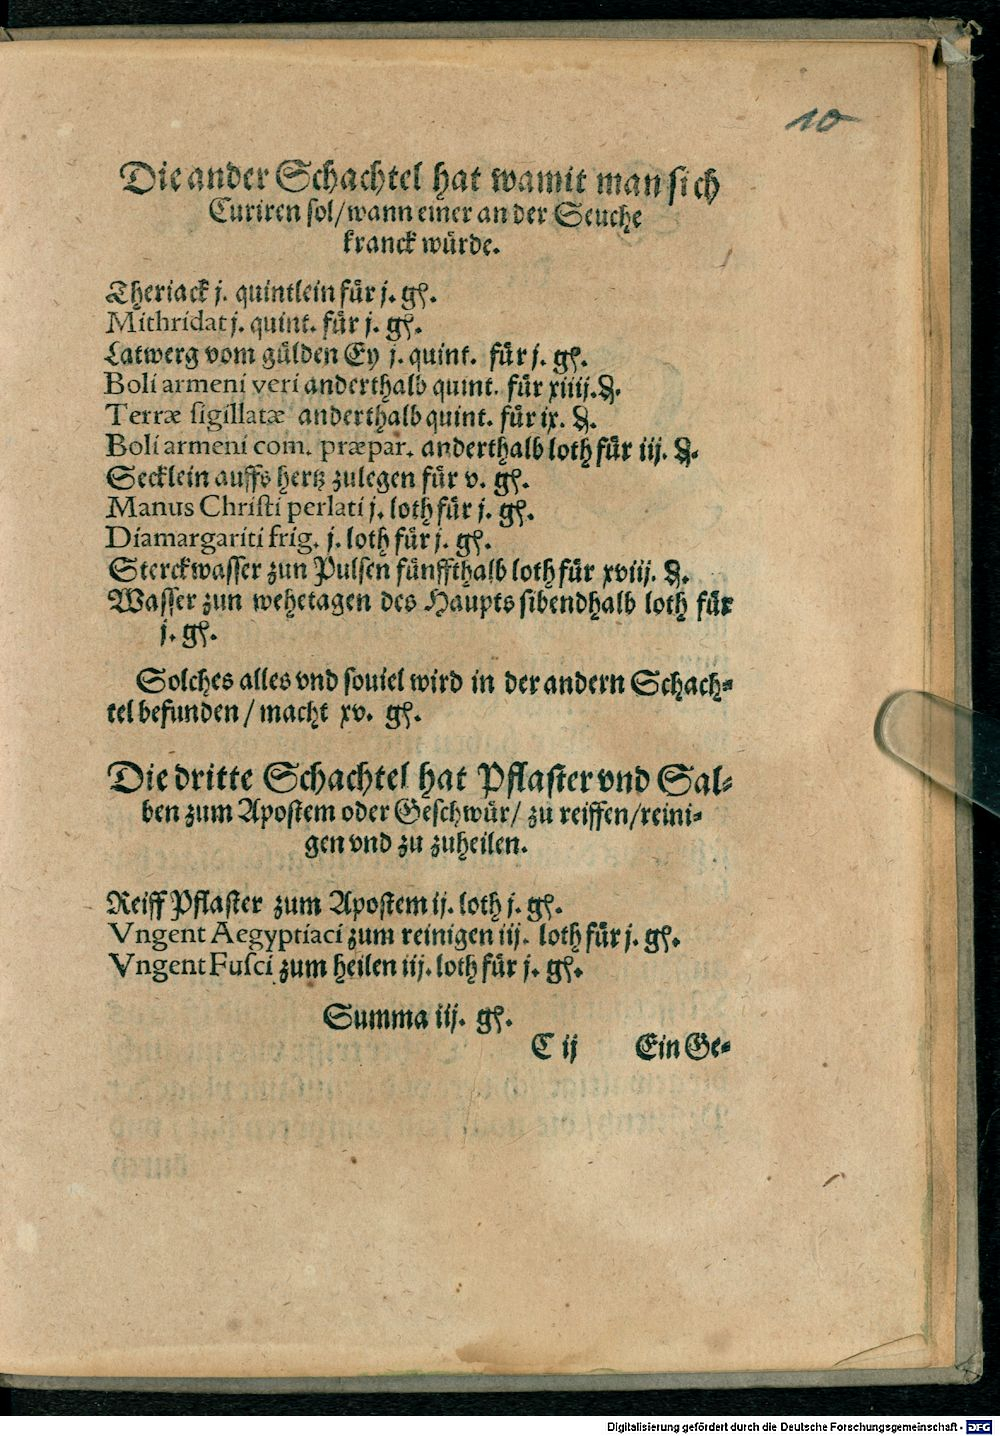 10
Die ander Schachtel hat wamit man sich
Curiren sol/wann einer an der Seuche
kranck würde.
Theriack j. quintlein für j. gℓ.
Mithridat j. quint. für j. gℓ.
Latwerg vom gülden Ey j. quint. für j. gℓ.
Boli armeni veri anderthalb quint. für xiiij. ₰.
Terræ sigillatæ anderthalb quint. für ix. ₰.
Boli armeni com. præpar. anderthalb loth für iij. ₰.
Secklein auffs hertz zulegen für v. gℓ.
Manus Christi perlati j. loth für j. gℓ.
Diamargariti frig. j. loth für j. gℓ.
Sterckwasser zun Pulsen fünffthalb loth für xviij. ₰.
Wasser zun wehetagen des Haupts sibendhalb loth für
j. gℓ.
Solches alles vnd souiel wird in der andern Schach-
tel befunden / macht xv. gℓ.
Die dritte Schachtel hat Pflaster vnd Sal-
ben zum Apostem oder Geschwür/ zu reiffen/reini-
gen vnd zu zuheilen.
Reiff Pflaster zum Apostem ij. loth j. gℓ.
Vngent Aegyptiaci zum reinigen iij. loth für j. gℓ.
Vngent Fusci zum heilen iij. loth für j. gℓ.
Summa iij. gℓ.
C ij Ein Ge-
Digitalisierung gefördert durch die Deutsche Forschungsgemeinschaft - DFG